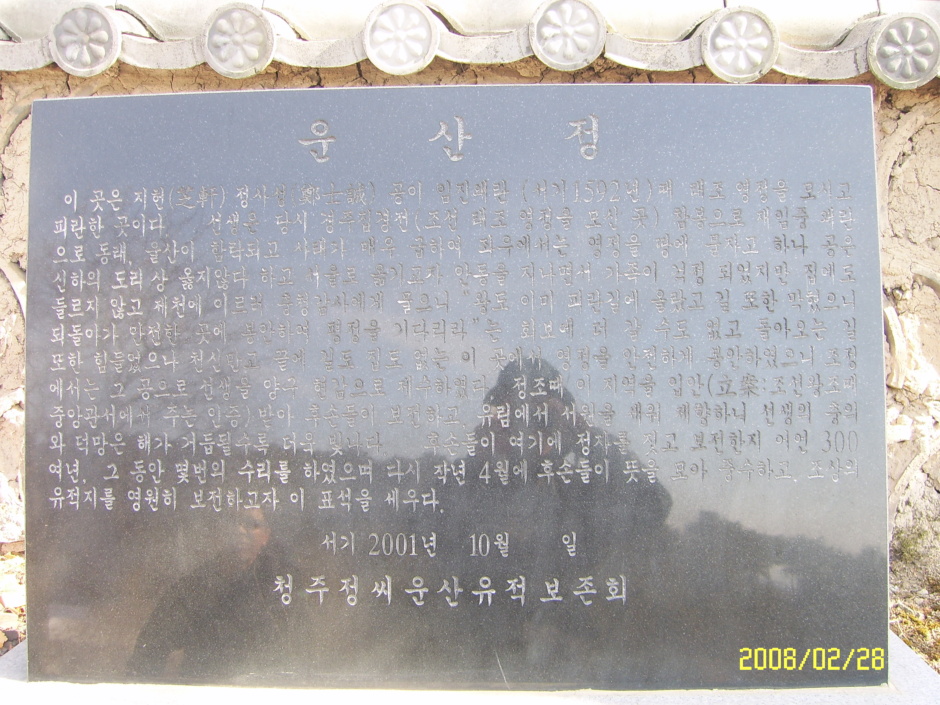 운산정
이 곳은 지헌(芝軒) 정사성(鄭士誠) 공이 임진왜란 (서기1592년)때 태조 영정을 모시고
피란한 곳이다. 선생은 당시 경주집경전(조선 태조 영정을 모신 곳) 참봉으로 재임중 왜란
으로 동래, 울산이 함락되고 사태가 매우 급하여 좌우에서는, 영정을 땅에 묻자고 하나 공은
신하의 도리 상 옳지않다 하고 서울로 옮기고자 안동을 지나면서 가족이 걱정 되었지만 집에도
들르지 않고 제천에 이르러 충청감사에게 물으니 "왕도 이미 피란길에 올랐고 길 또한 막혔으니
되돌아가 안전한 곳에 봉안하여 평정을 기다리라"는 회보에 더 갈 수도 없고 돌아오는 길
또한 힘들었으나 천신만고 끝에 길도 집도 없는 이 곳에서 영정을 안전하게 봉안하였으니 조정
에서는 그 공으로 선생을 양구 현감으로 제수하였다. 정조때 이 지역을 입안(立案:조선왕조때
중앙관서에서 주는 인증) 받아 후손들이 보전하고, 유림에서 서원을 세워 제향하니 선생의 충의
와 덕망은 해가 거듭될수록 더욱 빛난다. 후손들이 여기에 정자를 짓고 보전한지 어언 300
여년, 그 동안 몇번의 수리를 하였으며 다시 작년 4월에 후손들이 뜻을 모아 중수하고, 조상의
유적지를 영원히 보전하고자 이 표석을 세우다.
서기 2001년 10월 일
청주정씨운산유적보존회
2008/02/28